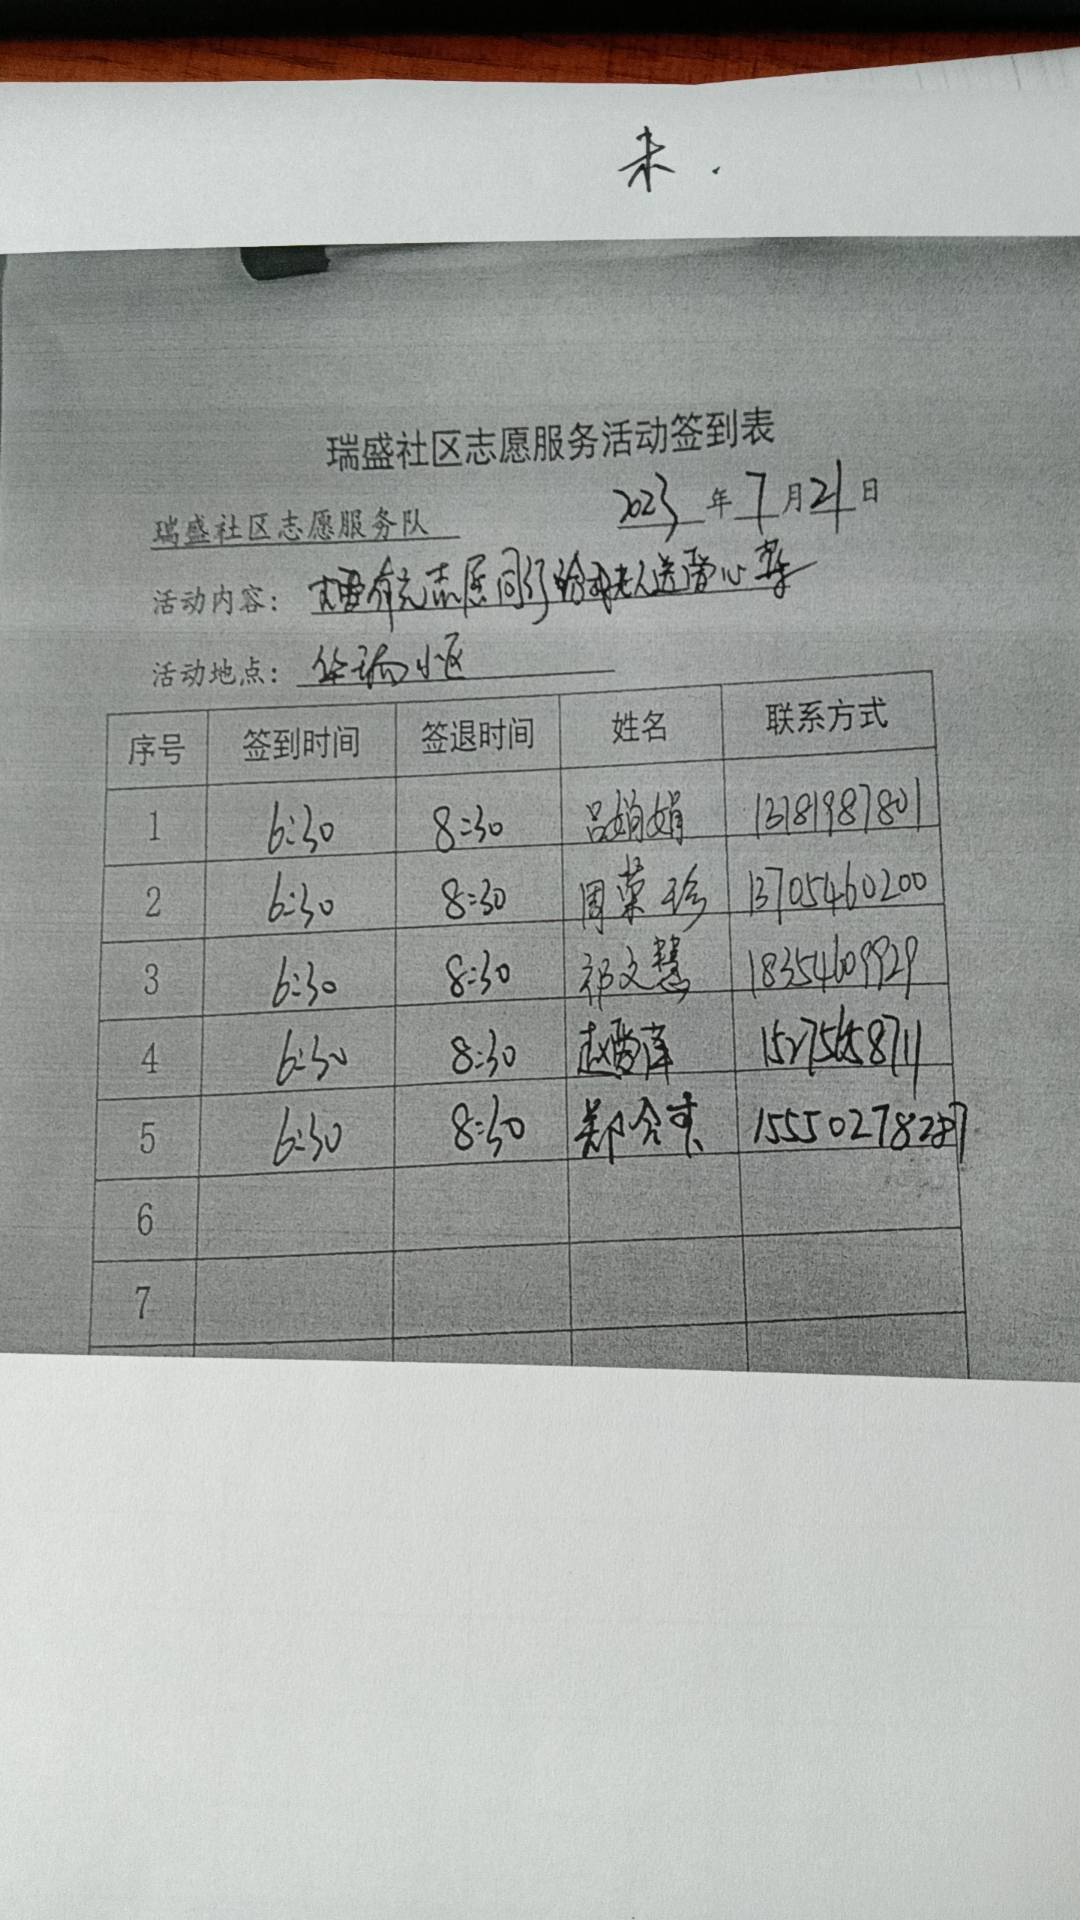 未.
瑞盛社区志愿服务活动签到表
瑞盛社区志愿服务队 2023年7月21日
活动内容: 有光志愿同行给老人送爱心
活动地点: 华瑞小区
序号 签到时间 签退时间 姓名 联系方式
1 6:30 8:30 吕娟娟 13181987801
2 6:30 8:30 周荣珍 13705460200
3 6:30 8:30 祁文慧 18354609929
4 6:30 8:30 赵 萍 15275658711
5 6:30 8:30 郑 15550278287
6
7